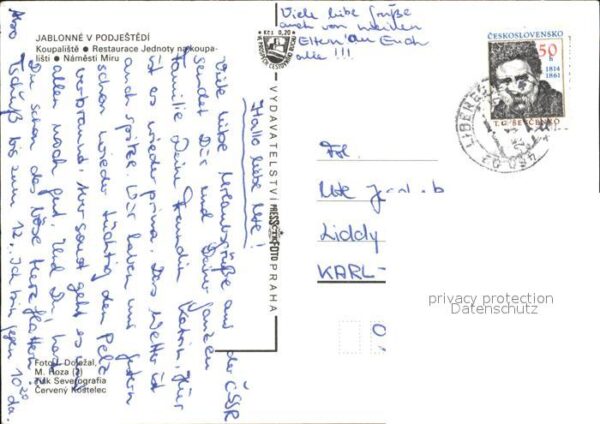 JABLONNÉ V PODJEŠTĚDÍ
Koupaliště ● Restaurace Jednoty na koupa-
lišti ● Náměstí Míru
Hallo liebe Ute!
Viele liebe Urlaubsgrüße aus der ČSSR
sendet Dir und Deiner ganzen
Familie Deine Freundin Katrin. Hier
ist es wieder prima. Das Wetter ist
auch spitze. Wir haben uns gestern
schon wieder tüchtig den Pelz
verbrannt, aber sonst geht es uns
allen noch gut. Und Du, hast
Du schon das böse Herzflattern?
Also Tschüß bis zum 12., ich bin gegen 10²⁰ da.
Foto J. Doležal,
M. Roza (2)
Tisk Severografia
Červený Kostelec
Kčs 0,20
VYDAVATELSTVÍ PRESSFOTO PRAHA
Viele liebe Grüße
auch von meinen
Eltern an Euch
alle!!!
ČESKOSLOVENSKO
50
h
1814
1861
T. G. ŠEVČENKO
LIBEREC
460 02
Frl.
Ute
Liddy
KARL-
privacy protection
Datenschutz